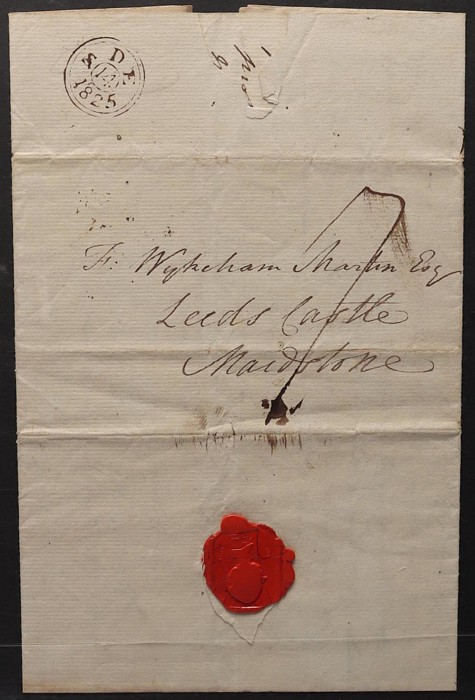 DE
14
1825
F. Wykeham Martin Esq
Leeds Castle
Maidstone
7